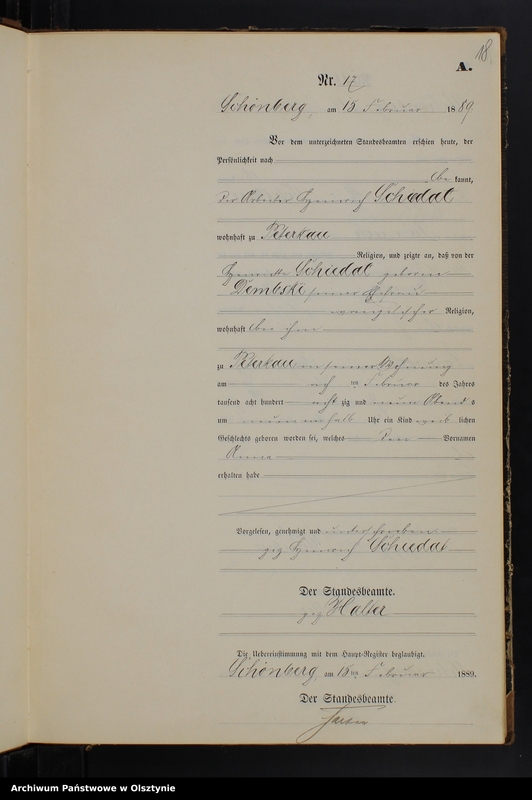 18
A.
Nr. 17
Schönberg, am 15 Februar 1889
Vor dem unterzeichneten Standesbeamten erschien heute, der
Persönlichkeit nach
kannt,
der Arbeiter Heinrich Schedat
wohnhaft zu Peterkau
Religion, und zeigte an, daß von der
Schiedat geborene
Dembski seiner Ehefrau
evangelischer Religion,
wohnhaft bei ihm
zu Peterkau in seiner Wohnung
am ten Februar des Jahres
tausend acht hundert acht zig und neun Abends
um neun einhalb Uhr ein Kind weib lichen
Geschlechts geboren worden sei, welches den Vornamen
Anna
erhalten habe
Vorgelesen, genehmigt und unterschrieben
gez Heinrich Schiedat
Der Standesbeamte.
gez Halter
Die Uebereinstimmung mit dem Haupt-Register beglaubigt.
Schönberg am 15ten Februar 1889.
Der Standesbeamte
Archiwum Państwowe w Olsztynie